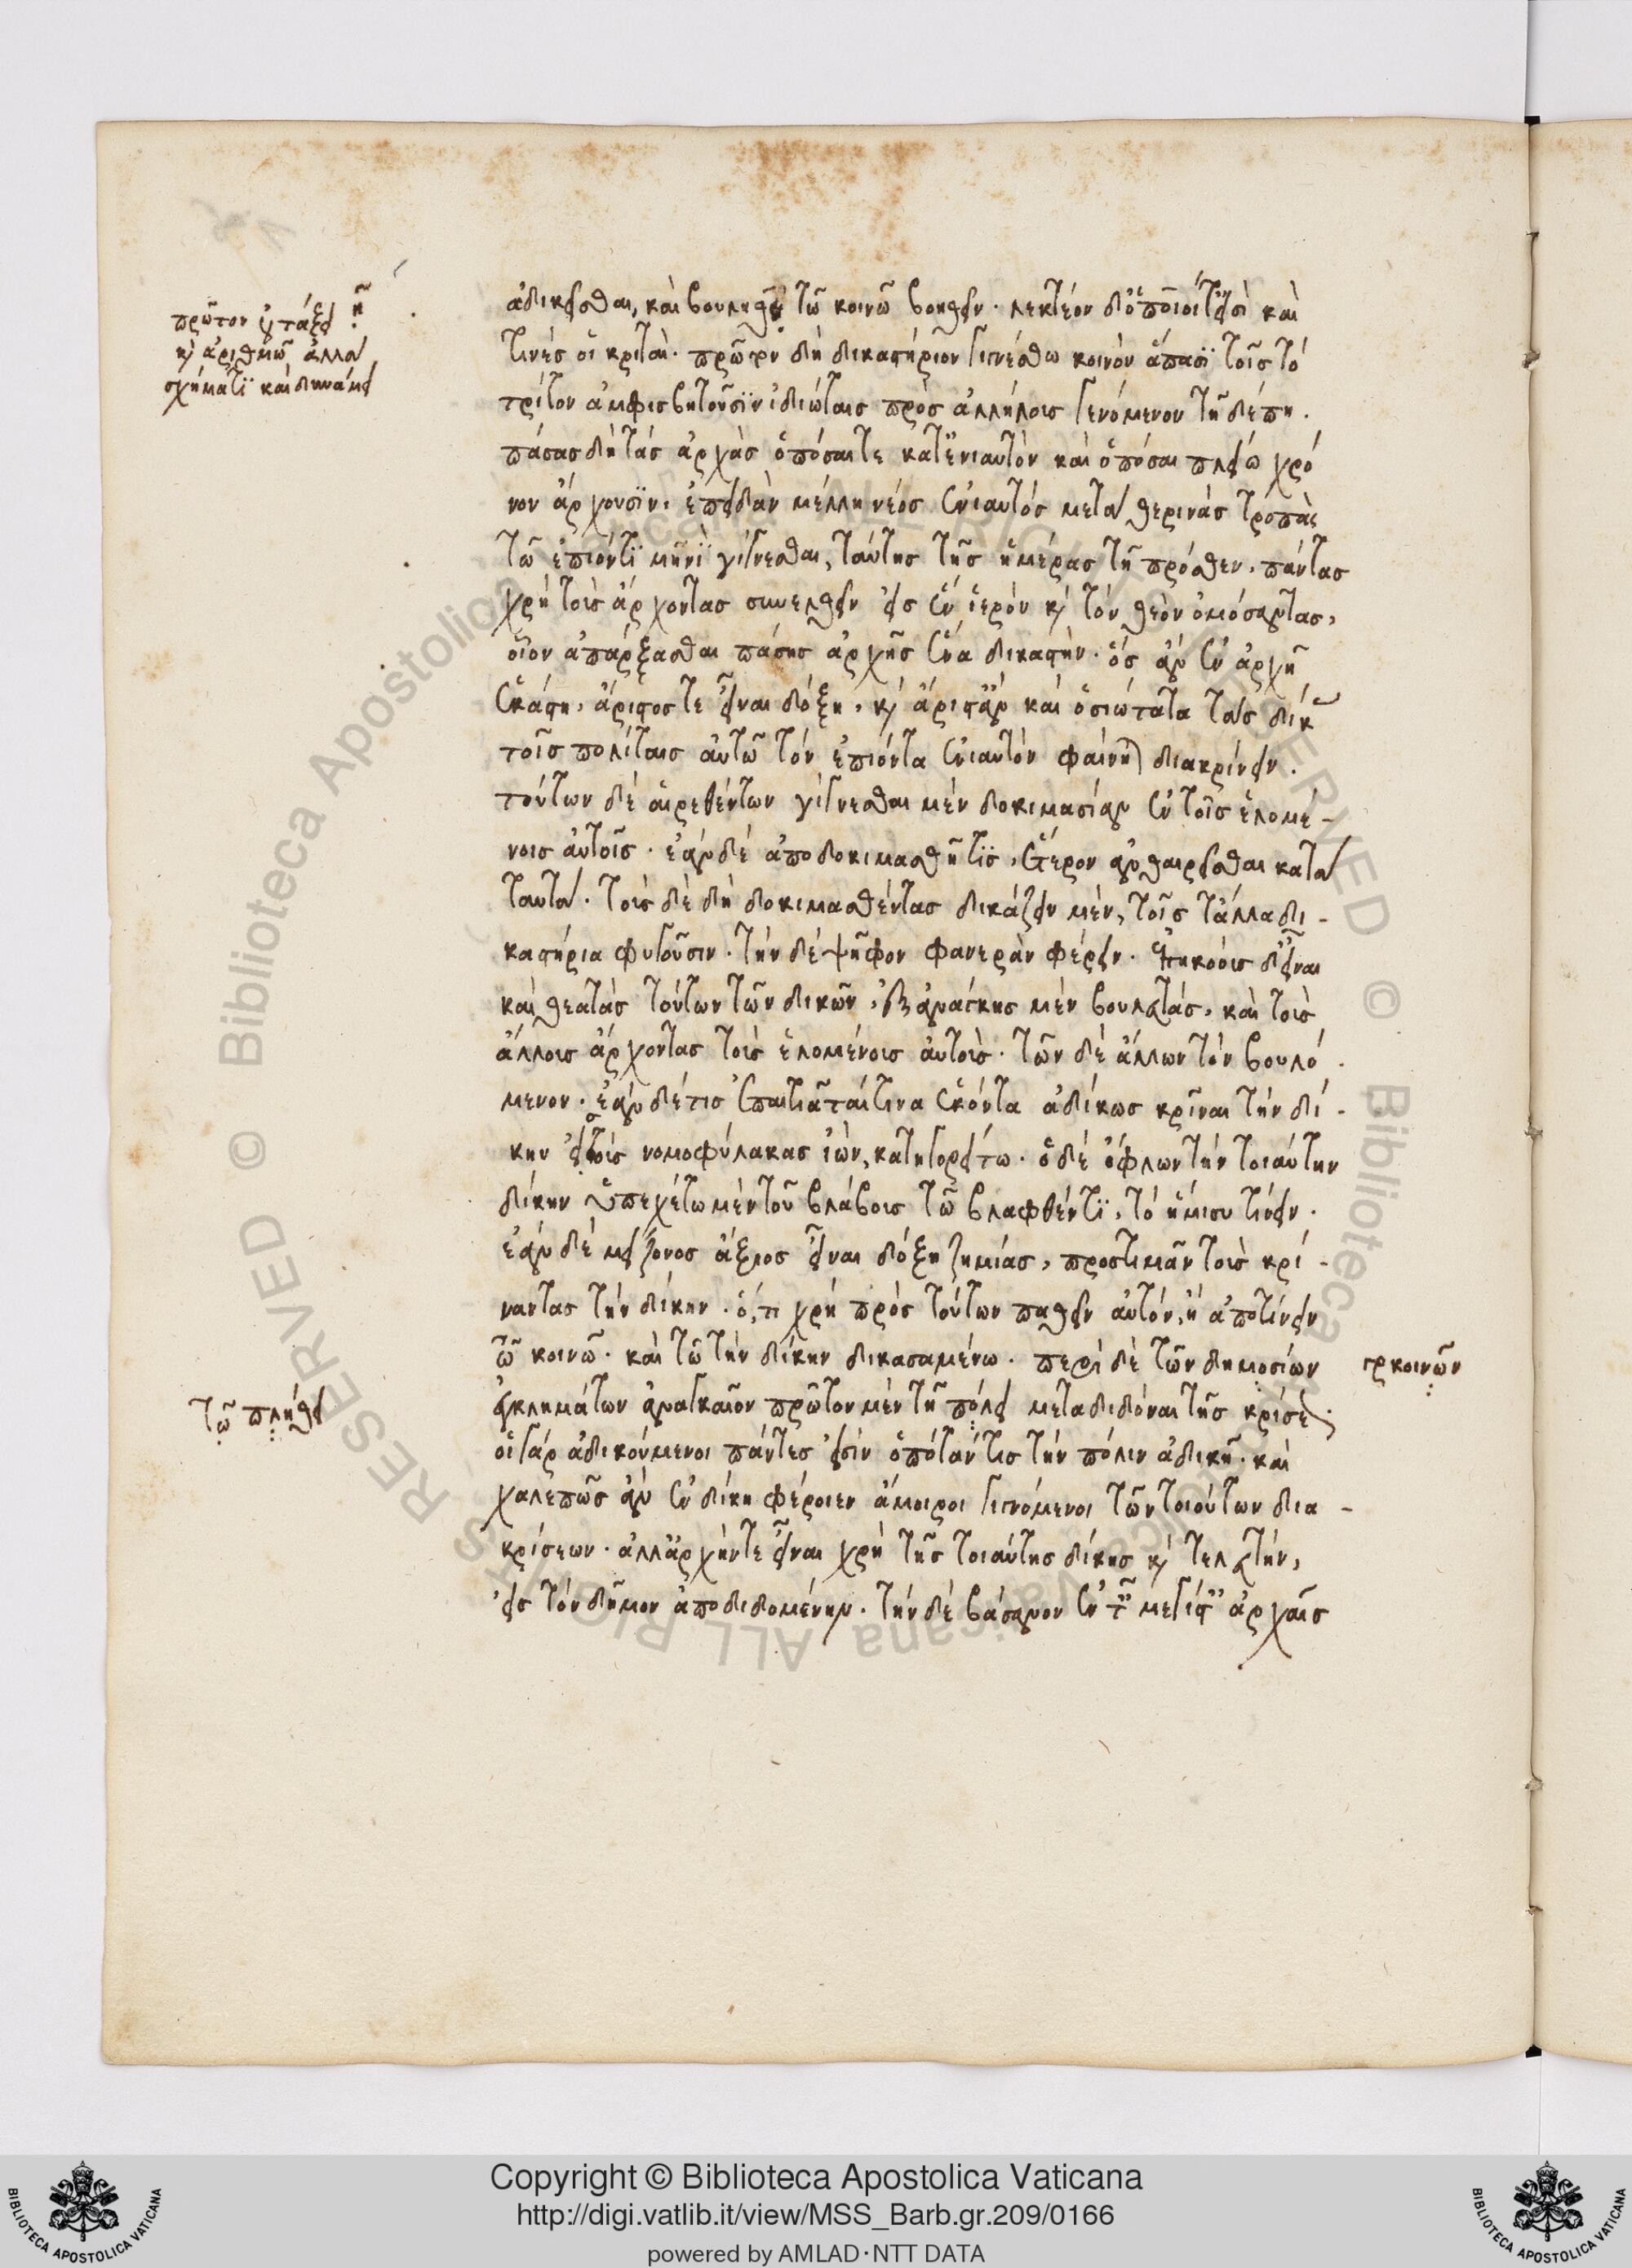 ἀδικεῖσθαι, καὶ βουληθῇ τῷ κοινῷ βοηθεῖν. λεκτέον δ' ὁποῖοί τ' εἰσὶ καὶ
τινὲς οἱ κριταί. πρῶτον δὴ δικαστήριον γιγνέσθω κοινὸν ἅπασι τοῖς τὸ
τρίτον ἀμφισβητοῦσιν ἰδιώταις πρὸς ἀλλήλους γενόμενον τῇδέ πῃ.
πάσας δὴ τὰς ἀρχὰς ὁπόσαι τε κατ' ἐνιαυτὸν καὶ ὁπόσαι πλείω χρό
νον ἄρχουσιν. ἐπειδὰν μέλλῃ νέος ἐνιαυτὸς μετὰ θερινὰς τροπὰς
τῷ ἐπιόντι μηνὶ γίγνεσθαι, ταύτης τῆς ἡμέρας τῇ πρόσθεν. πάντας
χρὴ τοὺς ἄρχοντας συνελθεῖν εἰς ἓν ἱερὸν καὶ τὸν θεὸν ὀμόσαντας,
οἷον ἀπάρξασθαι πάσης ἀρχῆς ἕνα δικαστήν. ὃς ἂν ἐν ἀρχῇ
ἑκάστῃ, ἄριστός τε εἶναι δόξῃ. καὶ ἄριστ' ἂν καὶ ὁσιώτατα τὰς δίκας
τοῖς πολίταις αὐτῷ τὸν ἐπιόντα ἐνιαυτὸν φαίνηται διακρίνειν.
τούτων δὲ αἱρεθέντων γίγνεσθαι μὲν δοκιμασίαν ἐν τοῖς ἑλομέ-
νοις αὐτοῖς. ἐὰν δὲ ἀποδοκιμασθῇ τις, ἕτερον ἀνθαιρεῖσθαι κατὰ
ταυτά. τοὺς δὲ δὴ δοκιμασθέντας δικάζειν μὲν, τοῖς τἄλλα δι-
καστήρια φυγοῦσιν. τὴν δὲ ψῆφον φανερὰν φέρειν. ἐπηκόους δ' εἶναι
καὶ θεατὰς τούτων τῶν δικῶν. ἐξ ἀνάγκης μὲν βουλευτάς. καὶ τοὺς
ἄλλους ἄρχοντας τοὺς ἑλομένους αὐτούς. τῶν δὲ ἄλλων τὸν βουλό
μενον. ἐὰν δέ τις ἐπαιτιᾶταί τινα ἑκόντα ἀδίκως κρῖναι τὴν δί-
κην εἰς τοὺς νομοφύλακας ἰὼν, κατηγορείτω. ὁ δὲ ὀφλὼν τὴν τοιαύτην
δίκην ὑπεχέτω μὲν τοῦ βλάβους τῷ βλαφθέντι, τὸ ἥμισυ τίνειν.
ἐὰν δὲ μείζονος ἄξιος εἶναι δόξῃ ζημίας, προστιμᾶν τοὺς κρί-
ναντας τὴν δίκην. ὅ,τι χρὴ πρὸς τούτων παθεῖν αὐτὸν, ἢ ἀποτίνειν
τῷ κοινῷ. καὶ τῷ τὴν δίκην δικασαμένῳ. περὶ δὲ τῶν δημοσίων
ἐγκλημάτων ἀναγκαῖον πρῶτον μὲν τῇ πόλει μεταδιδόναι τῆς κρίσεως
οἱ γὰρ ἀδικούμενοι πάντες εἰσὶν ὁπόταν τις τὴν πόλιν ἀδικῇ. καὶ
χαλεπῶς ἂν ἐν δίκῃ φέροιεν ἄμοιροι γιγνόμενοι τῶν τοιούτων δια-
κρίσεων. ἀλλ' ἀρχήν τε εἶναι χρὴ τῆς τοιαύτης δίκης καὶ τελευτὴν,
εἰς τὸν δῆμον ἀποδιδομένην. τὴν δὲ βάσανον ἐν ταῖς μεγίσταις ἀρχαῖς
πρῶτον ἐν τάξει ἢ
καὶ ἀριθμῷ ἀλλὰ
σχήματι καὶ δυνάμει
κοινῶν
τῷ πλήθει